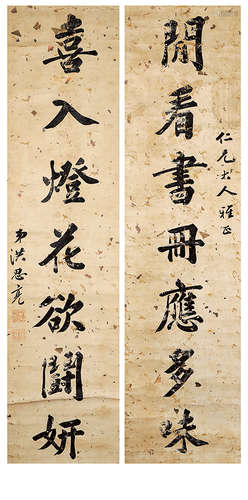 閒看書冊應多味
仁兄大人雅正
喜入燈花欲鬭妍
弟洪思亮